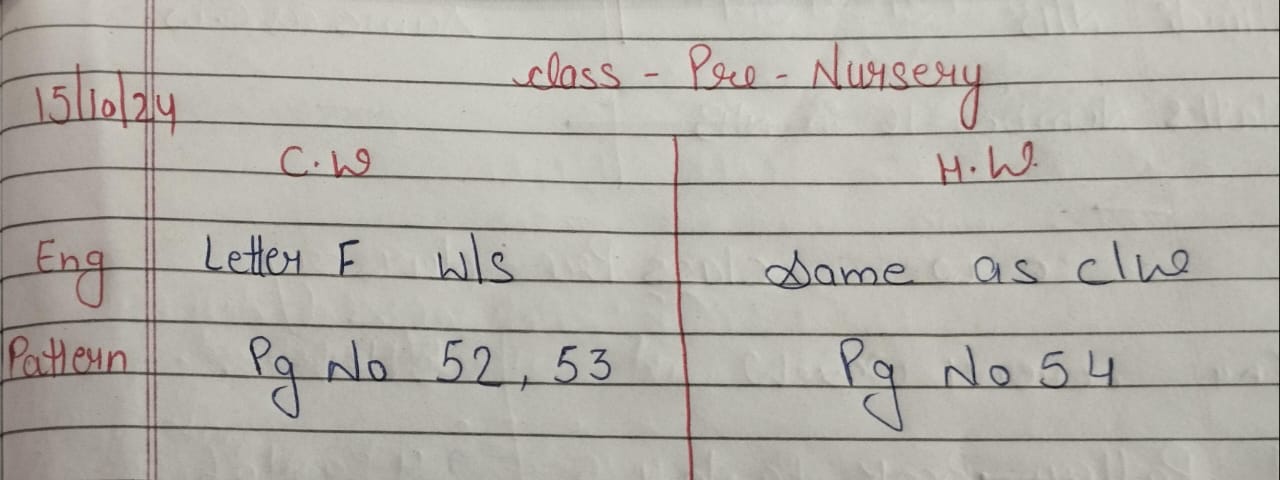 Class - Pre - Nursery
15/10/24
C.W H.W.
Eng Letter F W/S Same as c/w
Pattern Pg No 52, 53 Pg No 54